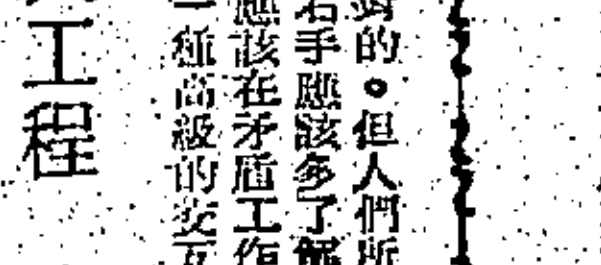 對的。但人們所
右手應該多了解
應該在矛盾工作
一種高級的交互
工程